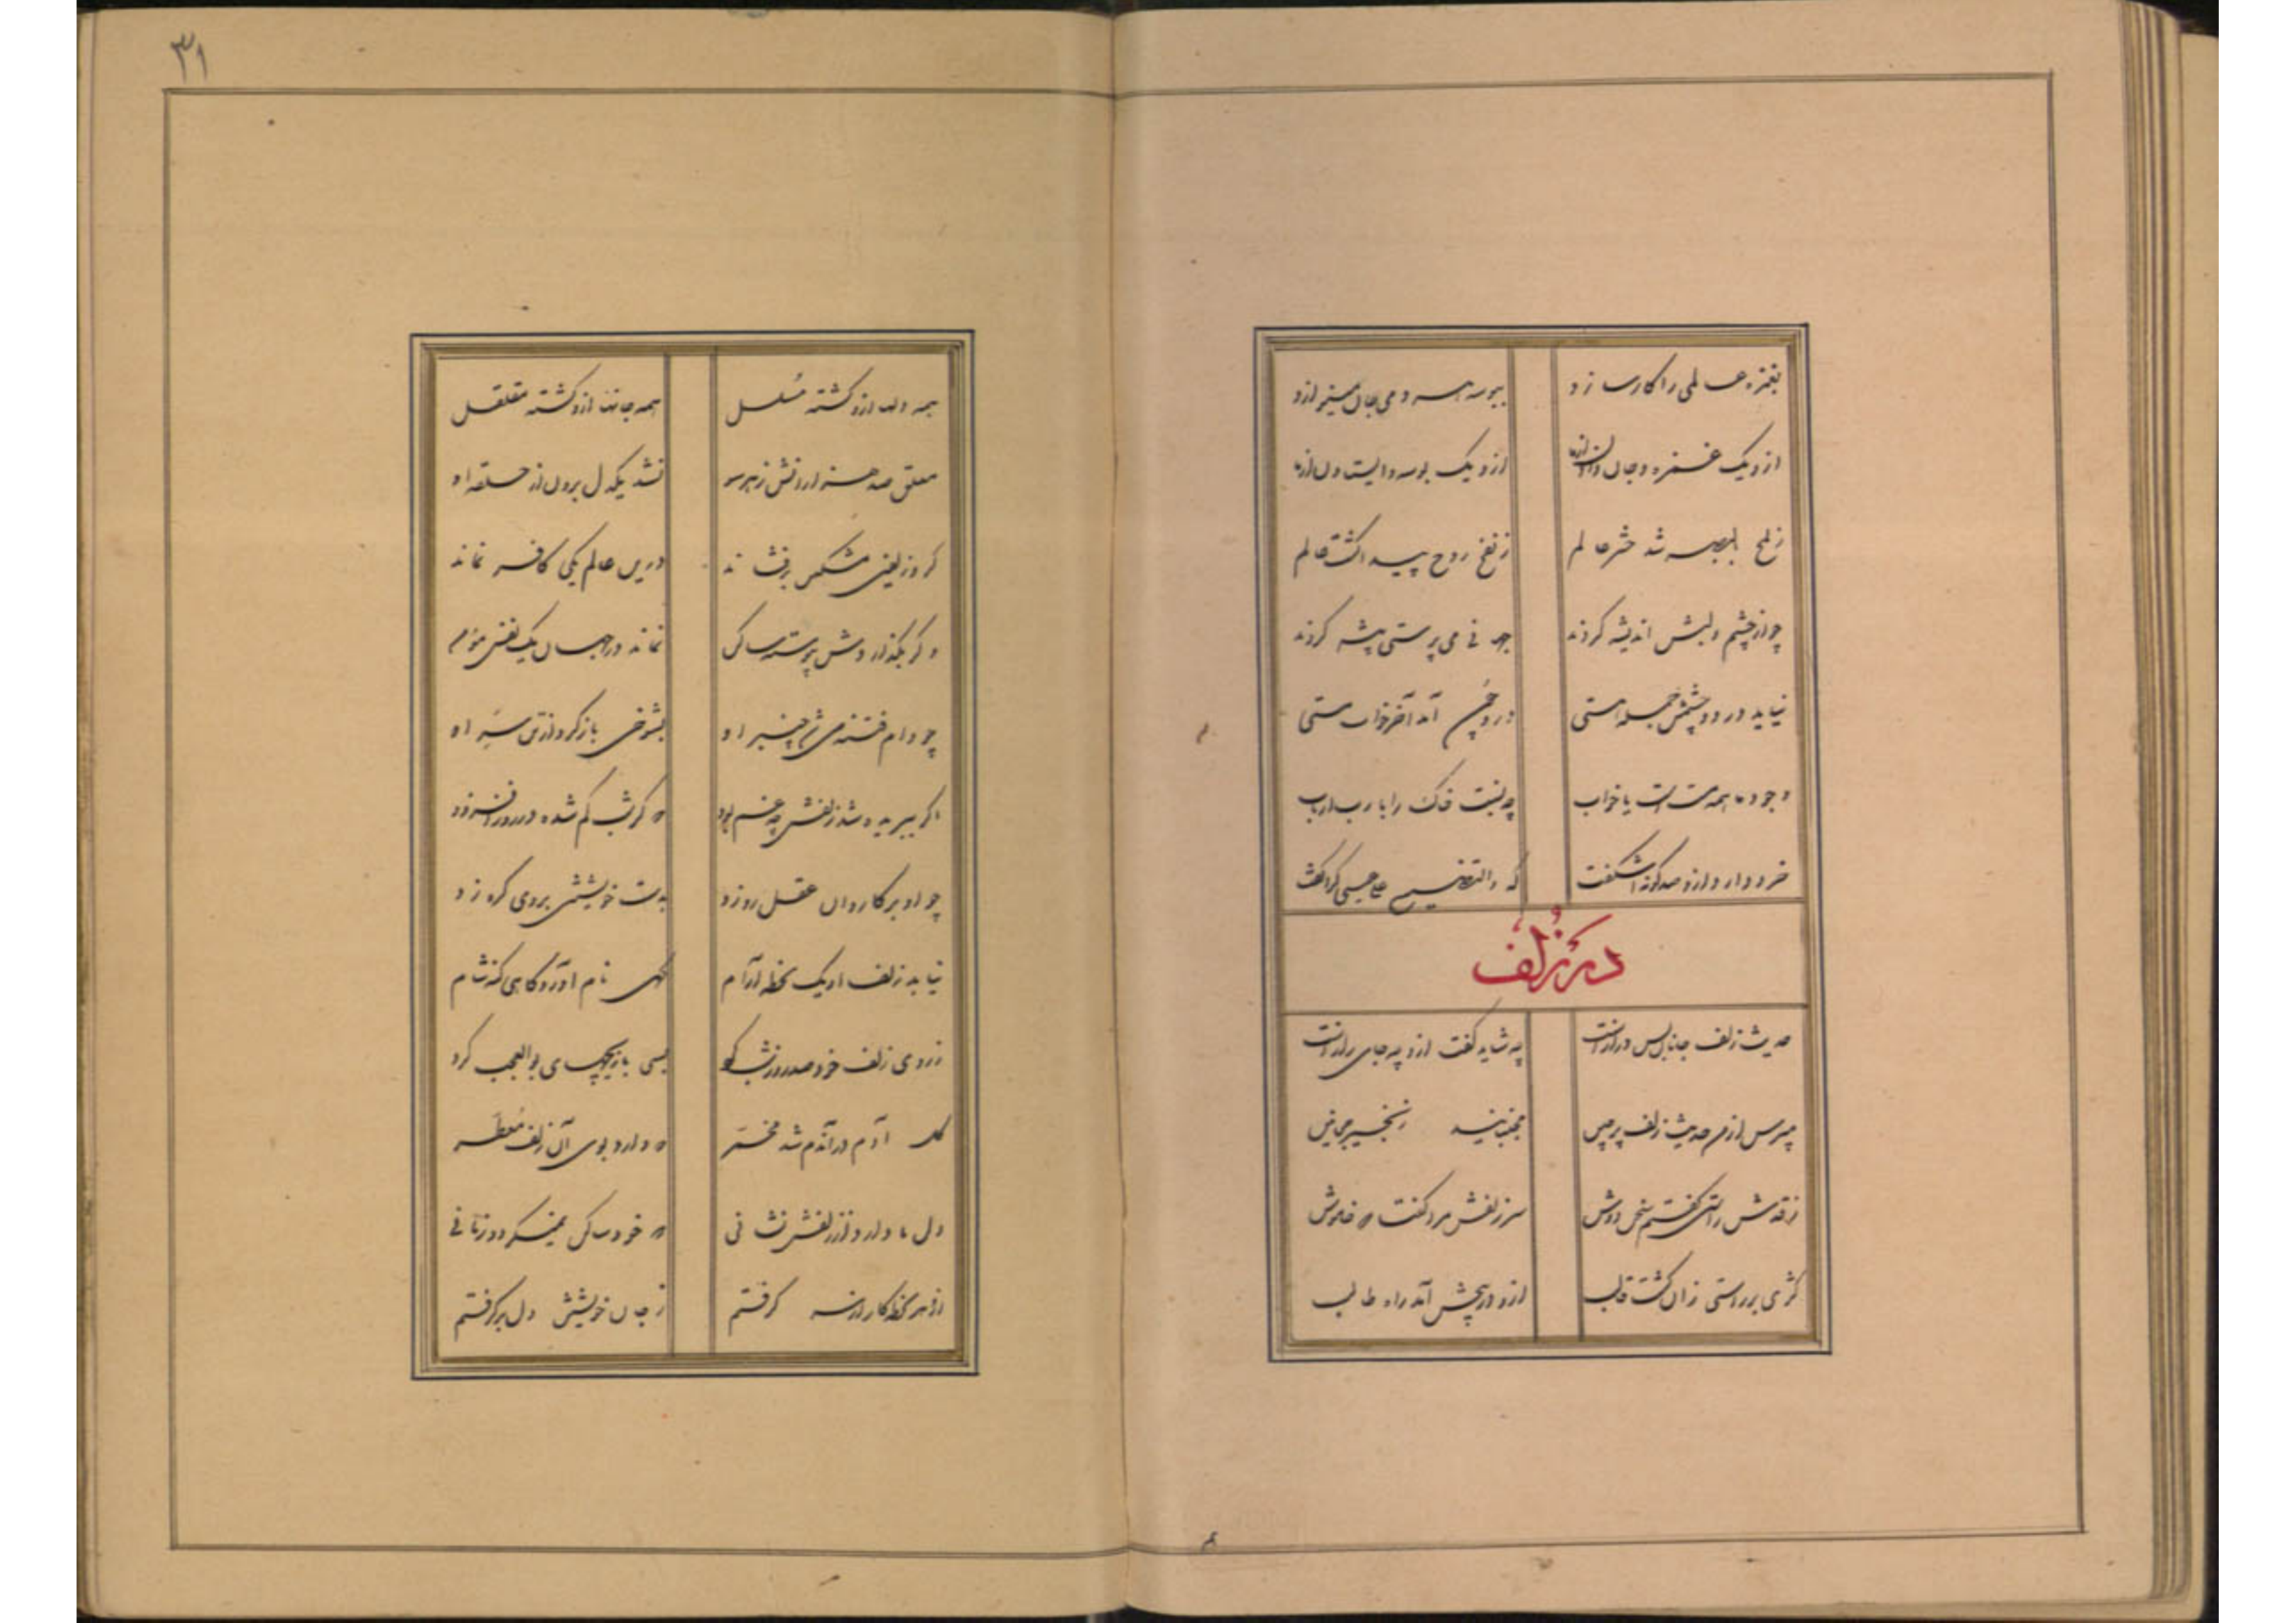 ۳۱
بغمزه عالمی را کار سازد
ببوسه هر دمی جان مینوازد
ازو یک غمزه و جان دادن از ما
ازو یک بوسه و استادن از ما
ز لمح بالبصر شد حشر عالم
ز نفخ روح پیدا گشت عالم
چو از چشم و لبش اندیشه کردند
جهانی می پرستی پیشه کردند
نیاید در دو چشمش جمله هستی
درو چون آید آخر خواب مستی
وجود ما همه مستی است یا خواب
چه نسبت خاک را با رب ارباب
خرد دارد ازو صد گونه اشگفت
که ولتصنع علی عینی کرا گفت
در زلف
حدیث زلف جانان بس دراز است
چه شاید گفت ازو چه جای راز است
مپرس از من حدیث زلف پرچین
مجنبانید زنجیر مجانین
ز قدش راستی گفتم سخن دوش
سر زلفش مرا گفتا که خاموش
کژی بر راستی زان گشت غالب
ازو در پیچش آمد راه طالب
همه دلها ازو گشته مسلسل
همه جانها ازو گشته مقلقل
معلق صد هزاران دل ز هر سو
نشد یکدل برون از حلقه او
گر او زلفین مشکین برفشاند
درین عالم یکی کافر نماند
وگر بگذاردش پیوسته ساکن
نماند در جهان یک نفس مومن
چو دام فتنه می شد چنبر او
بشوخی باز کرد از تن سر او
اگر ببریده شد زلفش چه غم بود
که گر شب کم شد و در روز افزود
چو او بر کاروان عقل ره زد
بدست خویشتن بر وی گره زد
نیابد زلف او یک لحظه آرام
گهی بام آورد گاهی کند شام
ز روی و زلف خود صد روز و شب کرد
بسی بازیچهای بوالعجب کرد
گل آدم در آندم شد مخمر
که دارد بوی آن زلف معطر
دل ما دارد از زلفش نشانی
که خود ساکن نمیگردد زمانی
ازو هر لحظه کار از سر گرفتم
ز جان خویشتن دل برگرفتم